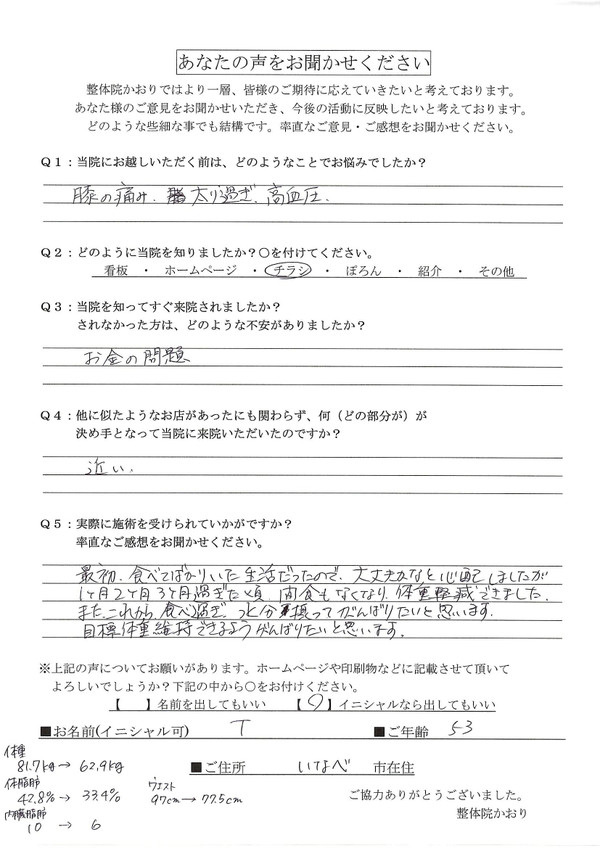 あなたの声をお聞かせください
整体院かおりではより一層、皆様のご期待に応えていきたいと考えております。
あなた様のご意見をお聞かせいただき、今後の活動に反映したいと考えております。
どのような些細な事でも結構です。率直なご意見・ご感想をお聞かせください。
Q1：当院にお越しいただく前は、どのようなことでお悩みでしたか？
膝の痛み、太り過ぎ、高血圧、
Q2：どのように当院を知りましたか？〇を付けてください。
看板 ・ ホームページ ・ チラシ ・ ぽろん ・ 紹介 ・ その他
Q3：当院を知ってすぐ来院されましたか？
されなかった方は、どのような不安がありましたか？
お金の問題
Q4：他に似たようなお店があったにも関わらず、何（どの部分が）が
決め手となって当院に来院いただいたのですか？
近い、
Q5：実際に施術を受けられていかがですか？
率直なご感想をお聞かせください。
最初、食べてばかりいた生活だったので、大丈夫かなと心配しましたが
1ヶ月2ヶ月3ヶ月過ぎた頃、間食もなくなり、体重軽減できました、
またこれから、食べ過ぎ、っと分摂ってがんばりたいと思います、
目標体重維持できるようがんばりたいと思います、
※上記の声についてお願いがあります。ホームページや印刷物などに記載させて頂いて
よろしいでしょうか？下記の中から〇をお付けください。
【 】名前を出してもいい 【〇】イニシャルなら出してもいい
■お名前(イニシャル可) T ■ご年齢 53
■ご住所 いなべ 市在住
体種
81.7kg→62.9kg
体脂肪
42.8%→33.4%
内臓脂肪
10 → 6
ウエスト
97cm→77.5cm
ご協力ありがとうございました。
整体院かおり